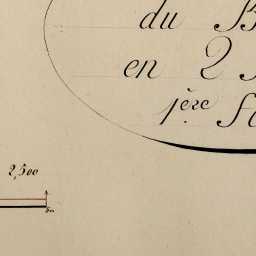 du
en 2
1ère
2,500